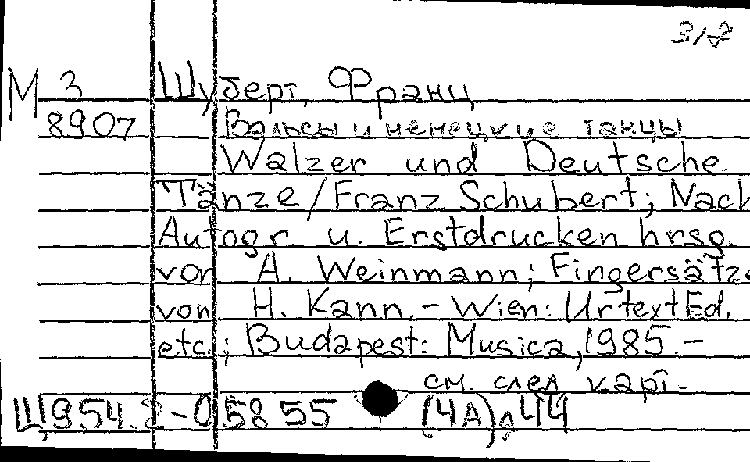 31-2
М 3 Шуберт, Франц
8907 Вальсы и немецкие танцы
Walzer und Deutsche
Tänze/Franz Schubert; Nach
Autogr. u. Erstdrucken hrsg.
von A. Weinmann; Fingersätze
von H. Kann. - Wien: Urtext Ed.
etc.; Budapest: Musica, 1985. -
см. след карт.
Ц954.2-05855 (4А)л44